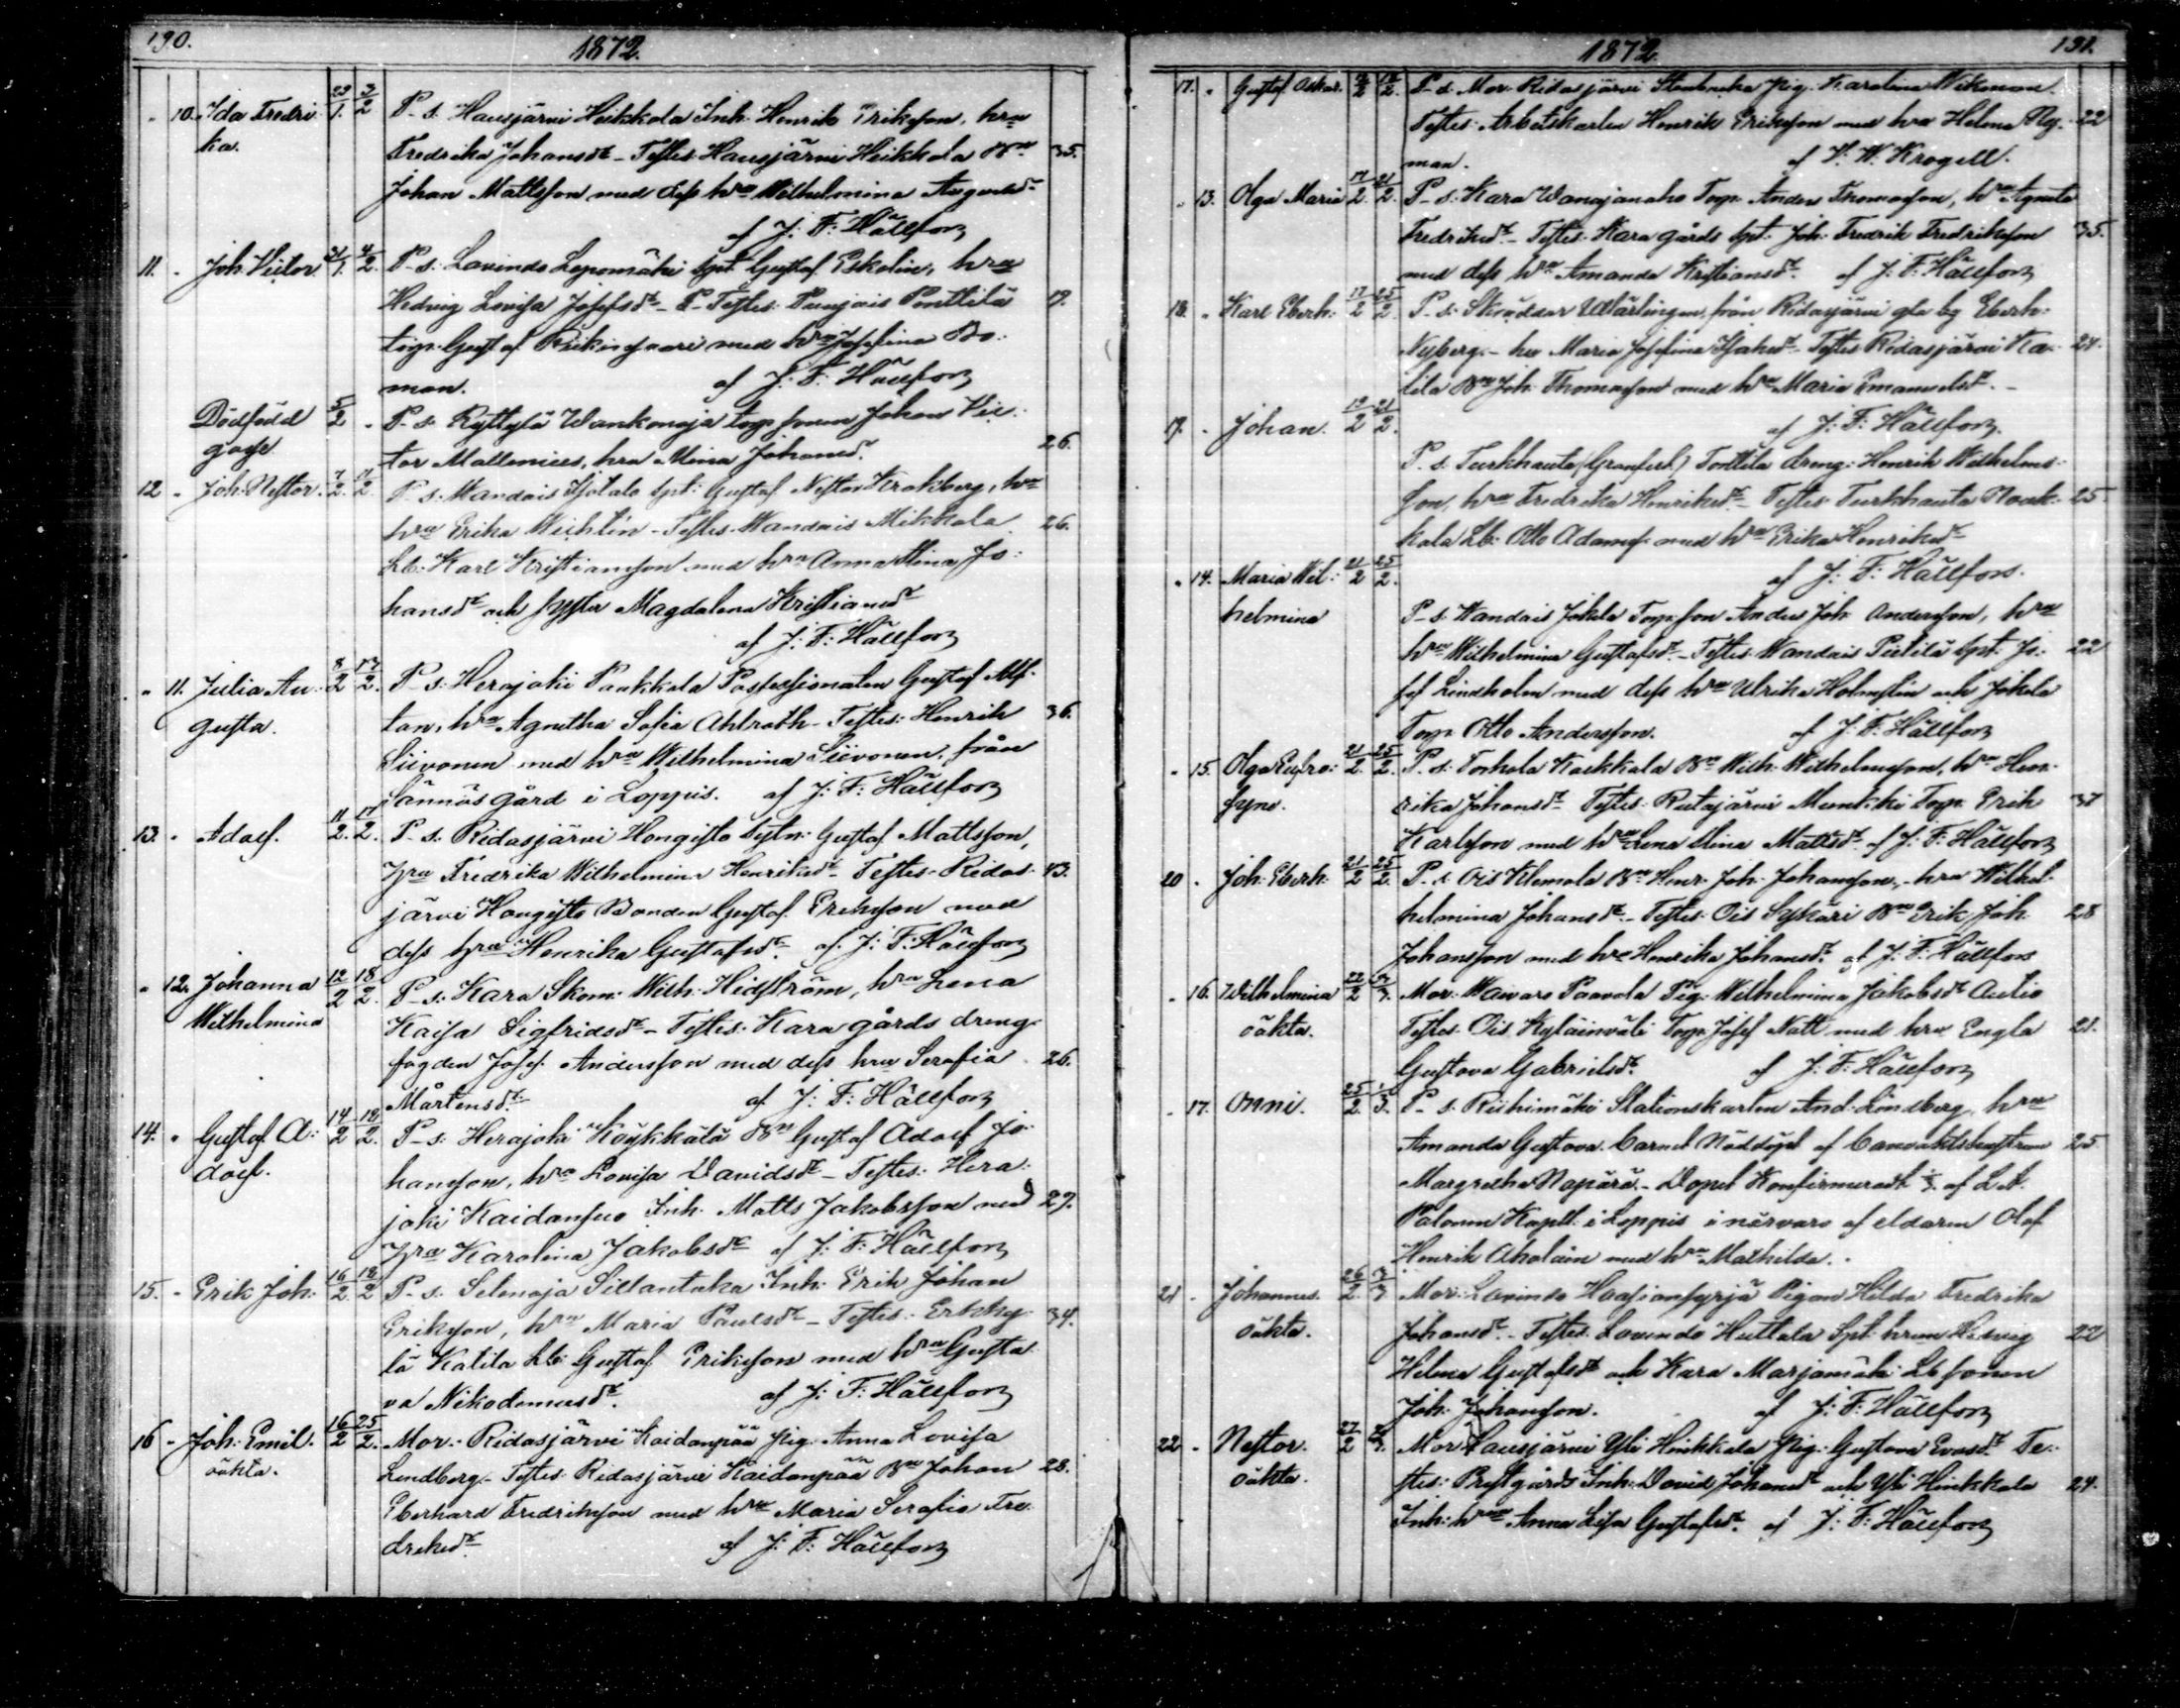 190.
1872.
" 10. Ida Fredri 23/1. 3/2 P. s. Hausjärvi Heikkola Inh. Henrik Eriksson, hru
ka. Fredrika Johansdr - Testes Hausjärvi Heikkola Bn 35.
Johan Mattsson med dess hru Wilhelmina Augustdr
af J: F: Hällfors
11. " Joh. Victor 31/1. 4/2. P. s. Lavindo Leponmäki spt. Gustaf Eskolin, hru
Hedvig Lovisa Josefsdr - Testes: Punjais Penttilä 19.
torp. Gustaf med hru Josefina Bo-
man. af J: F: Hällfors
Dödfödd 5/2 " P. s. Ryttylä Wankonoja torp. sonen Johan Vic-
gosse tor Mattenius, hru Mina Johansdr. 26.
12 " Joh. Nestor. 7/2. 11/2 P. s. Wandais Isotalo spt. Gustaf Nestor Krakberg, hru
hru Erika Wichtin - Testes Wandais Mikkola 26.
Lb. Karl Kristiansson med hru Anna Stina Jo-
hansdr och syster Magdalena Kristiansdr
af J: F: Hällfors
" 11. Julia Au- 8/2 17/2. P. s. Herajoki Pankkala Possessionaten Gustaf Alf-
gusta. tan, hru Agnetha Sofia Ahlroth - Testes: Henrik 36.
Siivonen med hru Wilhelmina Siivonen, från
Sännäs gård i Loppis. af J: F: Hällfors
13. " Adolf. 11/2. 17/2. P. s. Ridasjärvi Hongisto Sytn: Gustaf Mattsson,
hru Fredrika Wilhelmina Henriksdr - Testes: Ridas- 43.
järvi Hongisto Bonden Gustaf Eriksson med
dess hru Henrika Gustafsdr. af J: F: Hällfors
" 12. Johanna 12/2 18/2. P. s. Kara Skom. Wilh. Hidström, hru Lena
Wilhelmina Kaisa Sigfridsdr - Testes: Kara gårds dreng-
fogden Josef Andersson med dess hru Serafia 26.
Mårtensdr. af J: F: Hällfors
14. " Gustaf A- 14/2 18/2. P. s. Herajoki Köykkälä Bn Gustaf Adolf Jo-
dolf. hansson, hru Lovisa Davidsdr - Testes: Hera-
joki Kaidansuo Inh. Matts Jakobsson med 29.
hru Karolina Jakobsdr af J: F: Hällfors
15. " Erik Joh. 16/2. 18/2 P. s. Selenoja Sillantaka Inh. Erik Johan
Eriksson, hru Maria Paulsdr - Testes: Erkky- 34.
lä Katila Lb: Gustaf Eriksson med hru Gusta-
va Nikodemusdr. af J: F: Hällfors
16 " Joh. Emil. 16/2 25/2. Mor. Ridasjärvi Kaidanpää pig. Anna Lovisa
oäkta. Lindberg. Testes: Ridasjärvi Kaidanpää Bn Johan 28.
Eberhard Fredriksson med hru Maria Serafia Fre-
driksdr. af J: F: Hällfors
1872
191.
17. " Gustaf Oskar. 12/2 P. s. Mor. Ridasjärvi Stenbacka pig. Karolina Wikman
Testes: Arbetskarlen Henrik Eriksson med hru Helena Ny- 22
man. af V. W. Krogell.
" 13. Olga Maria 17/2. 21/2. P. s. Kara Wanajanaho Torp. Anders Thomasson, hru Agneta
Fredriksdr - Testes: Kara gårds spt. Joh. Fredrik Fredriksson 35.
med dess hru Amanda Kristiansdr. af J: F: Hällfors
18. " Karl Eberh: 17/2 25/2. P. s. Skräddar lärlingen från Ridasjärvi Eberh:
Nyberg. - hru Maria Josefina Isaksdr. Testes Ridasjärvi Ka- 24.
tila Bn Joh. Thomasson med hru Maria Emanuelsdr. -
af J: F: Hällfors.
19. " Johan. 19/2 21/2. P. s. Turkhauta (Granfeld) Tonttila dreng: Henrik Wilhelms-
son, hru Fredrika Henriksdr. - Testes Turkhauta Nook- 25.
kala Lb: Otto Adamss. med hru Erika Henriksdr
af J: F: Hällfors.
" 14. Maria Wil- 21/2 25/2. P. s. Wandais Jokela Torp. son Anders Joh. Andersson, hru
helmina hru Wilhelmina Gustafsdr. - Testes Wandais Pietilä spt. Jo- 22
sef Lindholm med dess hru Ulrika Holmstén och Jokela
Torp. Otto Andersson. af J: F: Hällfors
" 15. Olga Eufro- 21/2. 25/2. P. s. Torhola Kaekkala Bn Wilh. Wilhelmsson, hru Hen-
syne. rika Johansdr Testes: Rutajärvi Munkki Torp. Erik 37
Karlsson med hru Lena Stina Mattsdr. af J: F: Hällfors
20 " Joh. Eberh. 21/2 25/2. P. s. Ois Klemola Bn Henr. Joh. Johansson, hru Wilhel-
helmina Johansdr. - Testes: Ois Sykäri Bn Erik Joh. 28
Johansson med hru Henrika Johansdr. af J: F: Hällfors
" 16. Wilhelmina 22/2 3/3. Mor. Waivaro Paavola Pig. Wilhelmina Jakobsdr Autio
oäkta. Testes. Ois Kyläinväli Torp. Josef Natt med hru Engla 21.
Gustava Gabrielsdr. af J: F: Hällfors
" 17. Onni. 25/2. 1/3. P. s. Riihimäki Stationskarlen And. Lindberg, hru
Amanda Gustava. Barnet Nöddöpt af Banvaktshustrun 25
Margretha Napärä. - Dopet Konfirmeradt af L. A.
Palonen Kapell. i Loppis i närvaro af eldaren Olof
Henrik Aholain med hru Mathilda.
21 " Johannes. 26/2. 3/3 Mor. Lavindo Haasiansyrjä Pigan Hilda Fredrika
oäkta. Johansdr. - Testes. Lavindo Huttala Spt. hrun Hedvig 22
Helena Gustafsdr och Kara Marjamäki Lb sonen
Joh. Johansson. af J: F: Hällfors
22 " Nestor. 27/2 3/3. Mor. Hausjärvi Yli Hinkkala Pig. Gustava Evasdr. Te-
oäkta. stes: Prestgårds Inh. David Johansd. och Yli Hinkkala 24.
Inh. hru Anna Lisa Gustafsdr. af J: F: Hällfors